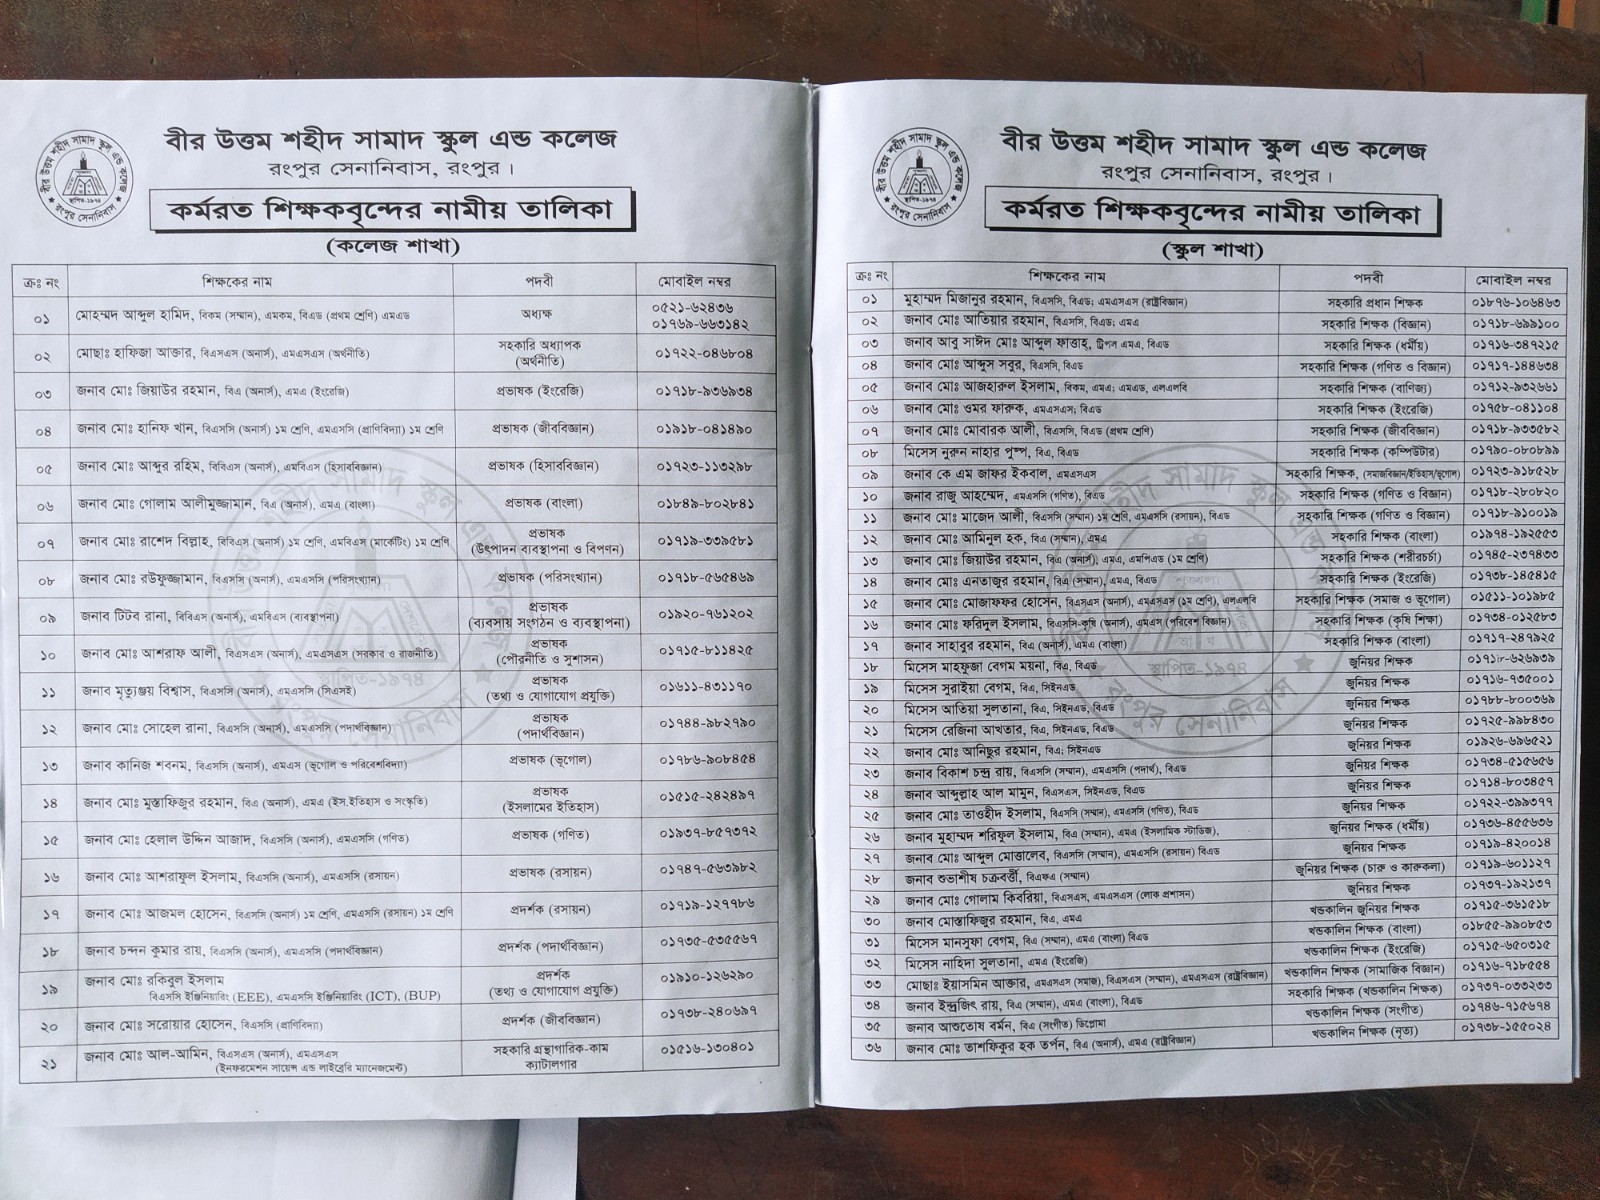 বীর উত্তম শহীদ সামাদ স্কুল এন্ড কলেজ
রংপুর সেনানিবাস, রংপুর।
কর্মরত শিক্ষকবৃন্দের নামীয় তালিকা
(কলেজ শাখা)
ক্রঃ নং শিক্ষকের নাম পদবী মোবাইল নম্বর
০১ মোহম্মদ আব্দুল হামিদ, বিকম (সম্মান), এমকম, বিএড (প্রথম শ্রেণি) এমএড অধ্যক্ষ ০৫২১-৬২৪৩৬
০১৭৬৯-৬৬৩১৪২
০২ মোছাঃ হাফিজা আক্তার, বিএসএস (অনার্স), এমএসএস (অর্থনীতি) সহকারি অধ্যাপক (অর্থনীতি) ০১৭২২-০৪৬৮০৪
০৩ জনাব মোঃ জিয়াউর রহমান, বিএ (অনার্স), এমএ (ইংরেজি) প্রভাষক (ইংরেজি) ০১৭১৮-৯৩৬৯৩৪
০৪ জনাব মোঃ হানিফ খান, বিএসসি (অনার্স) ১ম শ্রেণি, এমএসসি (প্রাণিবিদ্যা) ১ম শ্রেণি প্রভাষক (জীববিজ্ঞান) ০১৯১৮-০৪১৪৯০
০৫ জনাব মোঃ আব্দুর রহিম, বিবিএস (অনার্স), এমবিএস (হিসাববিজ্ঞান) প্রভাষক (হিসাববিজ্ঞান) ০১৭২৩-১১৩২৯৮
০৬ জনাব মোঃ গোলাম আলীমুজ্জামান, বিএ (অনার্স), এমএ (বাংলা) প্রভাষক (বাংলা) ০১৮৪৯-৮০২৮৪১
০৭ জনাব মোঃ রাশেদ বিল্লাহ, বিবিএস (অনার্স) ১ম শ্রেণি, এমবিএস (মার্কেটিং) ১ম শ্রেণি প্রভাষক (উৎপাদন ব্যবস্থাপনা ও বিপণন) ০১৭১৯-৩৩৯৫৮১
০৮ জনাব মোঃ রউফুজ্জামান, বিএসসি (অনার্স), এমএসসি (পরিসংখ্যান) প্রভাষক (পরিসংখ্যান) ০১৭১৮-৫৬৫৪৬৯
০৯ জনাব টিটব রানা, বিবিএস (অনার্স), এমবিএস (ব্যবস্থাপনা) প্রভাষক (ব্যবসায় সংগঠন ও ব্যবস্থাপনা) ০১৯২০-৭৬১২০২
১০ জনাব মোঃ আশরাফ আলী, বিএসএস (অনার্স), এমএসএস (সরকার ও রাজনীতি) প্রভাষক (পৌরনীতি ও সুশাসন) ০১৭১৫-৮১১৪২৫
১১ জনাব মৃত্যুঞ্জয় বিশ্বাস, বিএসসি (অনার্স), এমএসসি (সিএসই) প্রভাষক (তথ্য ও যোগাযোগ প্রযুক্তি) ০১৬১১-৪৩১১৭০
১২ জনাব মোঃ সোহেল রানা, বিএসসি (অনার্স), এমএসসি (পদার্থবিজ্ঞান) প্রভাষক (পদার্থবিজ্ঞান) ০১৭৪৪-৯৮২৭৯০
১৩ জনাব কানিজ শবনম, বিএসসি (অনার্স), এমএস (ভূগোল ও পরিবেশবিদ্যা) প্রভাষক (ভূগোল) ০১৭৮৬-৯০৮৪৫৪
১৪ জনাব মোঃ মুস্তাফিজুর রহমান, বিএ (অনার্স), এমএ (ইস.ইতিহাস ও সংস্কৃতি) প্রভাষক (ইসলামের ইতিহাস) ০১৫১৫-২৪২৪৯৭
১৫ জনাব মোঃ হেলাল উদ্দিন আজাদ, বিএসসি (অনার্স), এমএসসি (গণিত) প্রভাষক (গণিত) ০১৯৩৭-৮৫৭৩৭২
১৬ জনাব মোঃ আশরাফুল ইসলাম, বিএসসি (অনার্স), এমএসসি (রসায়ন) প্রভাষক (রসায়ন) ০১৭৪৭-৫৬৩৯৮২
১৭ জনাব মোঃ আজমল হোসেন, বিএসসি (অনার্স) ১ম শ্রেণি, এমএসসি (রসায়ন) ১ম শ্রেণি প্রদর্শক (রসায়ন) ০১৭১৯-১২৭৭৮৬
১৮ জনাব চন্দন কুমার রায়, বিএসসি (অনার্স), এমএসসি (পদার্থবিজ্ঞান) প্রদর্শক (পদার্থবিজ্ঞান) ০১৭৩৫-৫৩৫৫৬৭
১৯ জনাব মোঃ রকিবুল ইসলাম
বিএসসি ইঞ্জিনিয়ারিং (EEE), এমএসসি ইঞ্জিনিয়ারিং (ICT), (BUP) প্রদর্শক (তথ্য ও যোগাযোগ প্রযুক্তি) ০১৯১০-১২৬২৯০
২০ জনাব মোঃ সরোয়ার হোসেন, বিএসসি (প্রাণিবিদ্যা) প্রদর্শক (জীববিজ্ঞান) ০১৭৩৮-২৪০৬৯৭
২১ জনাব মোঃ আল-আমিন, বিএসএস (অনার্স), এমএসএস
(ইনফরমেশন সায়েন্স এন্ড লাইব্রেরি ম্যানেজমেন্ট) সহকারি গ্রন্থাগারিক-কাম ক্যাটালগার ০১৫১৬-১৩০৪০১
বীর উত্তম শহীদ সামাদ স্কুল এন্ড কলেজ
রংপুর সেনানিবাস, রংপুর।
কর্মরত শিক্ষকবৃন্দের নামীয় তালিকা
(স্কুল শাখা)
ক্রঃ নং শিক্ষকের নাম পদবী মোবাইল নম্বর
০১ মুহাম্মদ মিজানুর রহমান, বিএসসি, বিএড; এমএসএস (রাষ্ট্রবিজ্ঞান) সহকারি প্রধান শিক্ষক ০১৮৭৬-১০৬৪৬৩
০২ জনাব মোঃ আতিয়ার রহমান, বিএসসি, বিএড; এমএ সহকারি শিক্ষক (বিজ্ঞান) ০১৭১৮-৬৯৯১০০
০৩ জনাব আবু সাঈদ মোঃ আব্দুল ফাত্তাহ, ট্রিপল এমএ, বিএড সহকারি শিক্ষক (ধর্মীয়) ০১৭১৬-৩৪৭২১৫
০৪ জনাব মোঃ আব্দুস সবুর, বিএসসি, বিএড সহকারি শিক্ষক (গণিত ও বিজ্ঞান) ০১৭১৭-১৪৪৬৩৪
০৫ জনাব মোঃ আজহারুল ইসলাম, বিকম, এমএ; এমএড, এলএলবি সহকারি শিক্ষক (বাণিজ্য) ০১৭১২-৯৩২৬৬১
০৬ জনাব মোঃ ওমর ফারুক, এমএসএস; বিএড সহকারি শিক্ষক (ইংরেজি) ০১৭৫৮-০৪১১০৪
০৭ জনাব মোঃ মোবারক আলী, বিএসসি, বিএড (প্রথম শ্রেণি) সহকারি শিক্ষক (জীববিজ্ঞান) ০১৭১৮-৯৩৩৫৮২
০৮ মিসেস নুরুন নাহার পুষ্প, বিএ, বিএড সহকারি শিক্ষক (কম্পিউটার) ০১৭৯০-০৮০৮৯৯
০৯ জনাব কে এম জাফর ইকবাল, এমএসএস সহকারি শিক্ষক, (সমাজবিজ্ঞান/ইতিহাস/ভূগোল) ০১৭২৩-৯১৮৫২৮
১০ জনাব রাজু আহম্মেদ, এমএসসি (গণিত), বিএড সহকারি শিক্ষক (গণিত ও বিজ্ঞান) ০১৭১৮-২৮০৮২০
১১ জনাব মোঃ মাজেদ আলী, বিএসসি (সম্মান) ১ম শ্রেণি, এমএসসি (রসায়ন), বিএড সহকারি শিক্ষক (গণিত ও বিজ্ঞান) ০১৭১৮-৯১০০১৯
১২ জনাব মোঃ আমিনুল হক, বিএ (সম্মান), এমএ সহকারি শিক্ষক (বাংলা) ০১৯৭৪-১৯২৫৫৩
১৩ জনাব মোঃ জিয়াউর রহমান, বিএ (অনার্স), এমএ, এমপিএড (১ম শ্রেণি) সহকারি শিক্ষক (শরীরচর্চা) ০১৭৪৫-২৩৭৪৩৩
১৪ জনাব মোঃ এনতাজুর রহমান, বিএ (সম্মান), এমএ, বিএড সহকারি শিক্ষক (ইংরেজি) ০১৭৩৮-১৪৫৪১৫
১৫ জনাব মোঃ মোজাফফর হোসেন, বিএসএস (অনার্স), এমএসএস (১ম শ্রেণি), এলএলবি সহকারি শিক্ষক (সমাজ ও ভূগোল) ০১৫১১-১০১৯৮৫
১৬ জনাব মোঃ ফরিদুল ইসলাম, বিএসসি-কৃষি (অনার্স), এমএস (পরিবেশ বিজ্ঞান) সহকারি শিক্ষক (কৃষি শিক্ষা) ০১৭৩৪-০১২৫৮৩
১৭ জনাব সাহাবুর রহমান, বিএ (অনার্স), এমএ (বাংলা) সহকারি শিক্ষক (বাংলা) ০১৭১৭-২৪৭৯২৫
১৮ মিসেস মাহফুজা বেগম ময়না, বিএ, বিএড জুনিয়র শিক্ষক ০১৭১৮-৬২৬৯৩৯
১৯ মিসেস সুরাইয়া বেগম, বিএ, সিইনএড জুনিয়র শিক্ষক ০১৭১৬-৭৩৫০০১
২০ মিসেস আতিয়া সুলতানা, বিএ, সিইনএড, বিএড জুনিয়র শিক্ষক ০১৭৮৮-৮০০৩৬৯
২১ মিসেস রেজিনা আখতার, বিএ, সিইনএড, বিএড জুনিয়র শিক্ষক ০১৭২৫-৯৯৮৪৩০
২২ জনাব মোঃ আনিছুর রহমান, বিএ; সিইনএড জুনিয়র শিক্ষক ০১৯২৬-৬৯৬৫২১
২৩ জনাব বিকাশ চন্দ্র রায়, বিএসসি (সম্মান), এমএসসি (পদার্থ), বিএড জুনিয়র শিক্ষক ০১৭৩৪-৫১৫৬৫৬
২৪ জনাব আব্দুল্লাহ আল মামুন, বিএসএস, সিইনএড, বিএড জুনিয়র শিক্ষক ০১৭১৪-৮০৩৪৫৭
২৫ জনাব মোঃ তাওহীদ ইসলাম, বিএসসি (সম্মান), এমএসসি (গণিত), বিএড জুনিয়র শিক্ষক ০১৭২২-৩৯৯৩৭৭
২৬ জনাব মুহাম্মদ শরিফুল ইসলাম, বিএ (সম্মান), এমএ (ইসলামিক স্টাডিজ), জুনিয়র শিক্ষক (ধর্মীয়) ০১৭৩৬-৪৫৫৬৩৬
২৭ জনাব মোঃ আব্দুল মোত্তালেব, বিএসসি (সম্মান), এমএসসি (রসায়ন) বিএড জুনিয়র শিক্ষক ০১৭১৯-৪২০০১৪
২৮ জনাব শুভাশীষ চক্রবর্ত্তী, বিএফএ (সম্মান) জুনিয়র শিক্ষক (চারু ও কারুকলা) ০১৭১৯-৬০১১২৭
২৯ জনাব মোঃ গোলাম কিবরিয়া, বিএসএস, এমএসএস (লোক প্রশাসন) জুনিয়র শিক্ষক ০১৭৩৭-১৯২১৩৭
৩০ জনাব মোস্তাফিজুর রহমান, বিএ, এমএ খন্ডকালিন জুনিয়র শিক্ষক ০১৭১৫-৩৬১৫১৮
৩১ মিসেস মানসুফা বেগম, বিএ (সম্মান), এমএ (বাংলা) বিএড খন্ডকালিন শিক্ষক (বাংলা) ০১৮৫৫-৯৯০৮৫৩
৩২ মিসেস নাহিদা সুলতানা, এমএ (ইংরেজি) খন্ডকালিন শিক্ষক (ইংরেজি) ০১৭১৫-৬৫০৩১৫
৩৩ মোছাঃ ইয়াসমিন আক্তার, এমএসএস (সমাজ), বিএসএস (সম্মান), এমএসএস (রাষ্ট্রবিজ্ঞান) খন্ডকালিন শিক্ষক (সামাজিক বিজ্ঞান) ০১৭১৬-৭১৮৫৫৪
৩৪ জনাব ইন্দ্রজিৎ রায়, বিএ (সম্মান), এমএ (বাংলা), বিএড সহকারি শিক্ষক (খন্ডকালিন শিক্ষক) ০১৭৩৭-০৩৩২৩৩
৩৫ জনাব আশুতোষ বর্মন, বিএ (সংগীত) ডিপ্লোমা খন্ডকালিন শিক্ষক (সংগীত) ০১৭৪৬-৭১৫৬৭৪
৩৬ জনাব মোঃ তাশফিকুর হক তর্পন, বিএ (অনার্স), এমএ (রাষ্ট্রবিজ্ঞান) খন্ডকালিন শিক্ষক (নৃত্য) ০১৭৩৮-১৫৫০২৪